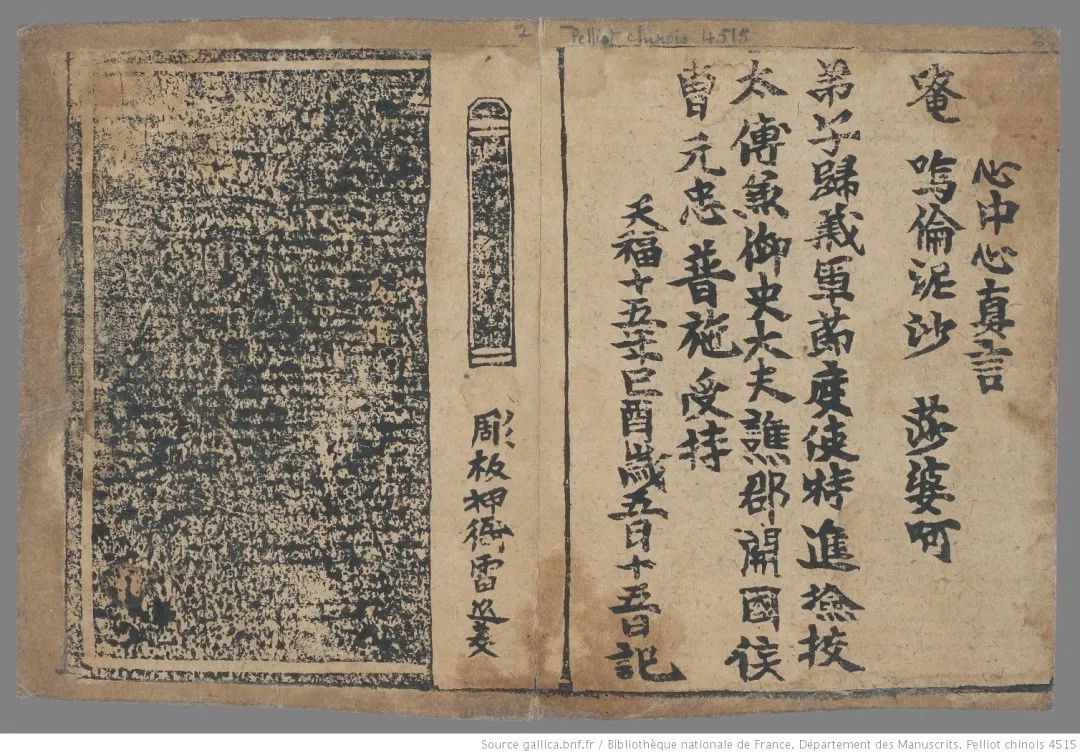 Pelliot chinois 4515
2
心中心真言
唵 嗚倫泥沙 莎婆呵
弟子歸義軍節度使特進撿挍
太傅兼御史大夫譙郡開國侯
曹元忠普施受持
天福十五年己酉歲五月十五日記
彫板押衙雷延美
Source gallica.bnf.fr / Bibliothèque nationale de France. Département des Manuscrits. Pelliot chinois 4515